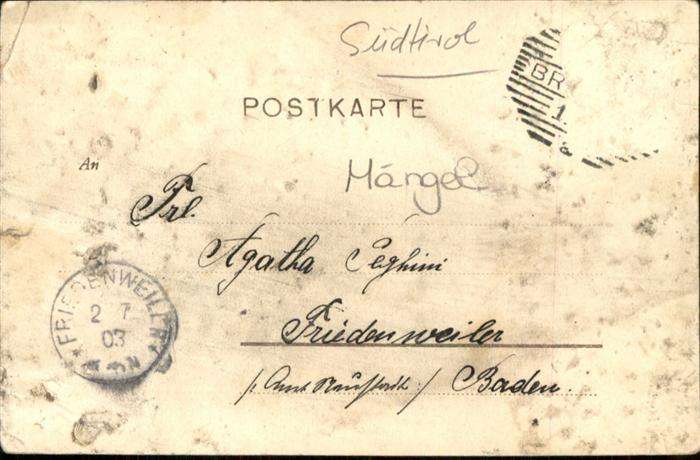 Südtirol
BR
1
a
POSTKARTE
An
Mängel
Frl.
Agatha Seghini
Friedenweiler
/: Amt Neustadt / Baden.
FRIEDENWEILER
2 7
03